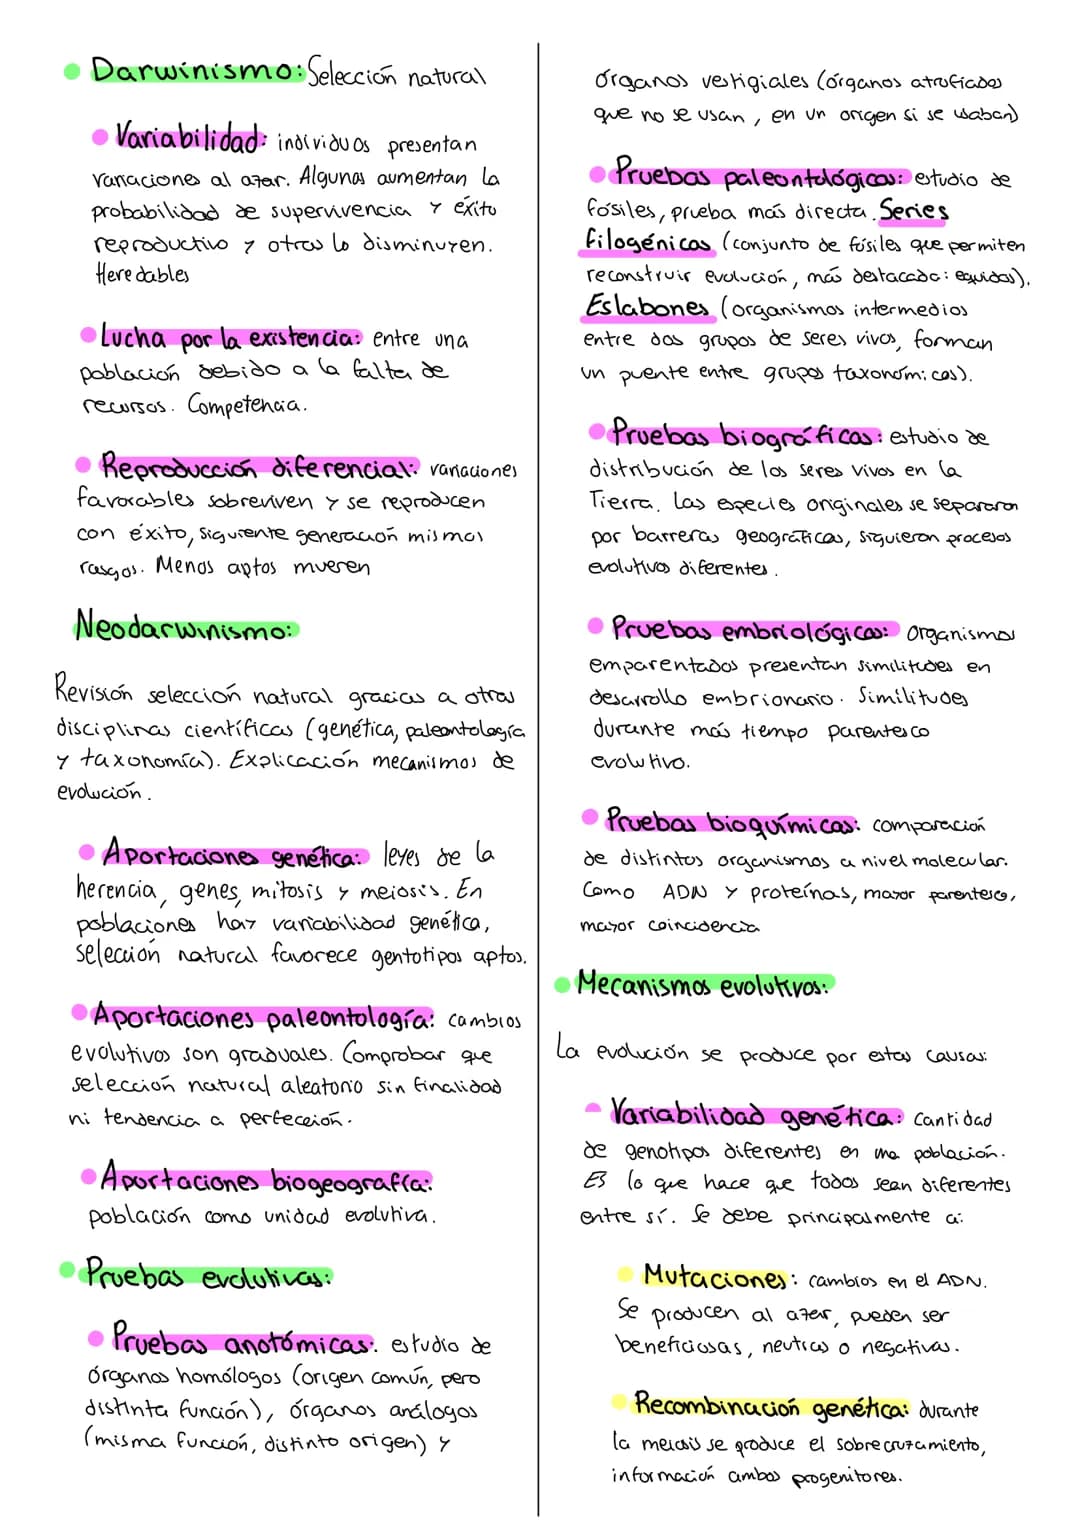 Darwinismo: Selección natural
Variabilidad: individuos presentan
variaciones al azar. Algunas aumentan la
probabilidad de supervivencia y éxito
reproductivo y otras lo disminuyen.
Heredables
Lucha por la existencia: entre una
población debido a la falta de
recursos. Competencia.
Reproducción diferencial: variaciones
favorables sobreviven y se reproducen
con éxito, siguiente generación mismos
rasgos. Menos aptos mueren
Neodarwinismo:
Revisión selección natural gracias a otras
disciplinas científicas (genética, paleontología
y taxonomía). Explicación mecanismos de
evolución.
Aportaciones genética: leyes de la
herencia, genes, mitosis y meiosis. En
poblaciones hay variabilidad genética,
selección natural favorece gentotipos aptos.
Aportaciones paleontología: cambios
evolutivos son graduales. Comprobar que
selección natural aleatorio sin finalidad
ni tendencia a perfección.
Aportaciones biogeografía:
población como unidad evolutiva.
Pruebas evolutivas:
Pruebas anatómicas: estudio de
órganos homólogos (origen común, pero
distinta función), órganos análogos
(misma función, distinto origen) y
órganos vestigiales (órganos atrofiados
que no se usan, en un origen si se usaban)
Pruebas paleontológicas: estudio de
fósiles, prueba más directa. Series
filogénicas (conjunto de fósiles que permiten
reconstruir evolución, más destacada: equidos).
Eslabones (organismos intermedios
entre dos grupos de seres vivos, forman
un puente entre grupos taxonómicos).
Pruebas biográficas: estudio de
distribución de los seres vivos en la
Tierra. Las especies originales se separaron
por barreras geográficas, siguieron procesos
evolutivos diferentes.
Pruebas embriológicas: Organismos
emparentados presentan similitudes en
desarrollo embrionario. Similitudes
durante más tiempo parentesco
evolutivo.
Pruebas bioquímicas: comparación
de distintos organismos a nivel molecular.
Como ADN y proteínas, mayor parentesco,
mayor coincidencia
Mecanismos evolutivos:
La evolución se produce por estas causas:
Variabilidad genética: Cantidad
de genotipos diferentes en una población.
Es lo que hace que todos sean diferentes
entre sí. Se debe principalmente a:
Mutaciones: cambios en el ADN.
Se producen al azar, pueden ser
beneficiosas, neutras o negativas.
Recombinación genética: durante
la meiosis se produce el sobrecruzamiento,
información ambos progenitores.